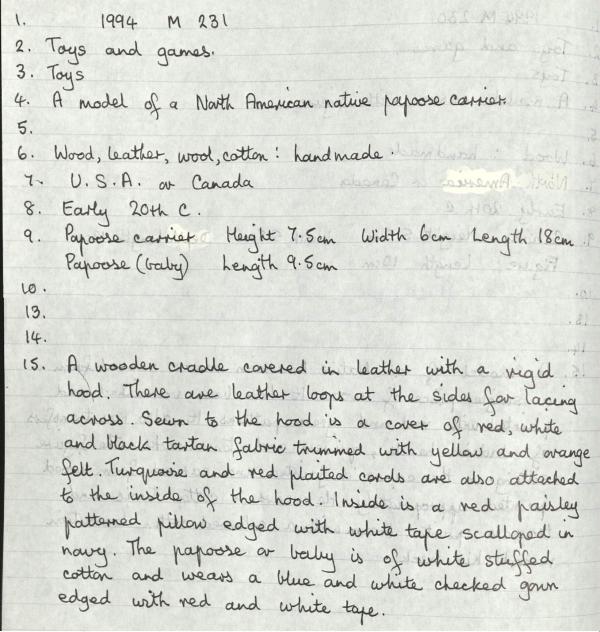 1. 1994 M 231
2. Toys and games.
3. Toys
4. A model of a North American native papoose carrier
5.
6. Wood, leather, wool, cotton: handmade.
7. U.S.A. or Canada
8. Early 20th C.
9. Papoose carrier Height 7.5cm Width 6cm Length 18cm
Papoose (baby) Length 9.5cm
10.
13.
14.
15. A wooden cradle covered in leather with a rigid
hood. There are leather loops at the sides for lacing
across. Sewn to the hood is a cover of red, white
and black tartan fabric trimmed with yellow and orange
felt. Turquoise and red plaited cords are also attached
to the inside of the hood. Inside is a red paisley
patterned pillow edged with white tape scalloped in
navy. The papoose or baby is of white stuffed
cotton and wears a blue and white checked gown
edged with red and white tape.